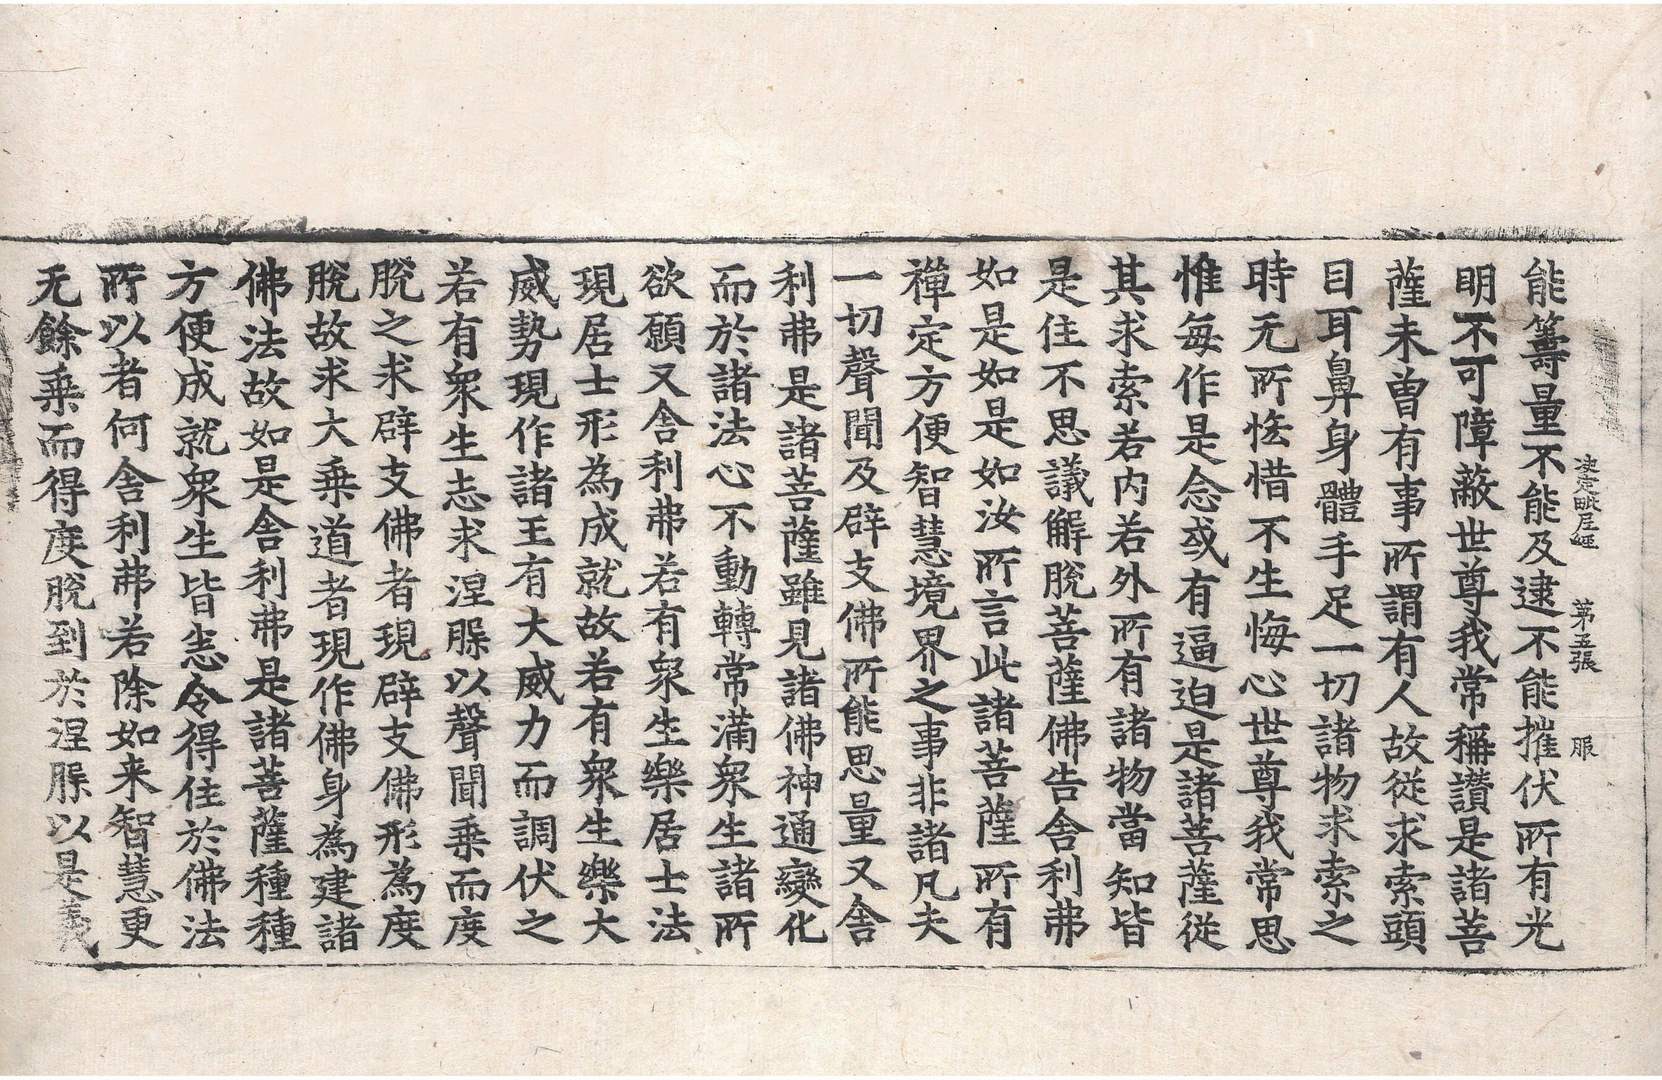 决定毗尼經 第五張 服
能籌量不能及逮不能摧伏所有光
明不可障蔽世尊我常稱讃是諸菩
薩未曽有事所謂有人故從求索頭
目耳鼻身體手足一切諸物求索之
時无所恡惜不生悔心世尊我常思
惟每作是念或有逼迫是諸菩薩從
其求索若内若外所有諸物當知皆
是住不思議解脫菩薩佛告舎利弗
如是如是如汝所言此諸菩薩所有
禪定方便智慧境界之事非諸凡夫
一切聲聞及辟支佛所能思量又舎
利弗是諸菩薩雖見諸佛神通變化
而於諸法心不動轉常滿衆生諸所
欲願又舎利弗若有衆生樂居士法
現居士形為成就故若有衆生樂大
威勢現作諸王有大威力而調伏之
若有衆生志求涅槃以聲聞乗而度
脫之求辟支佛者現辟支佛形為度
脫故求大乗道者現作佛身為建諸
佛法故如是舎利弗是諸菩薩種種
方便成就衆生皆悉令得住於佛法
所以者何舎利弗若除如来智慧更
无餘乗而得度脫到於涅槃以是義